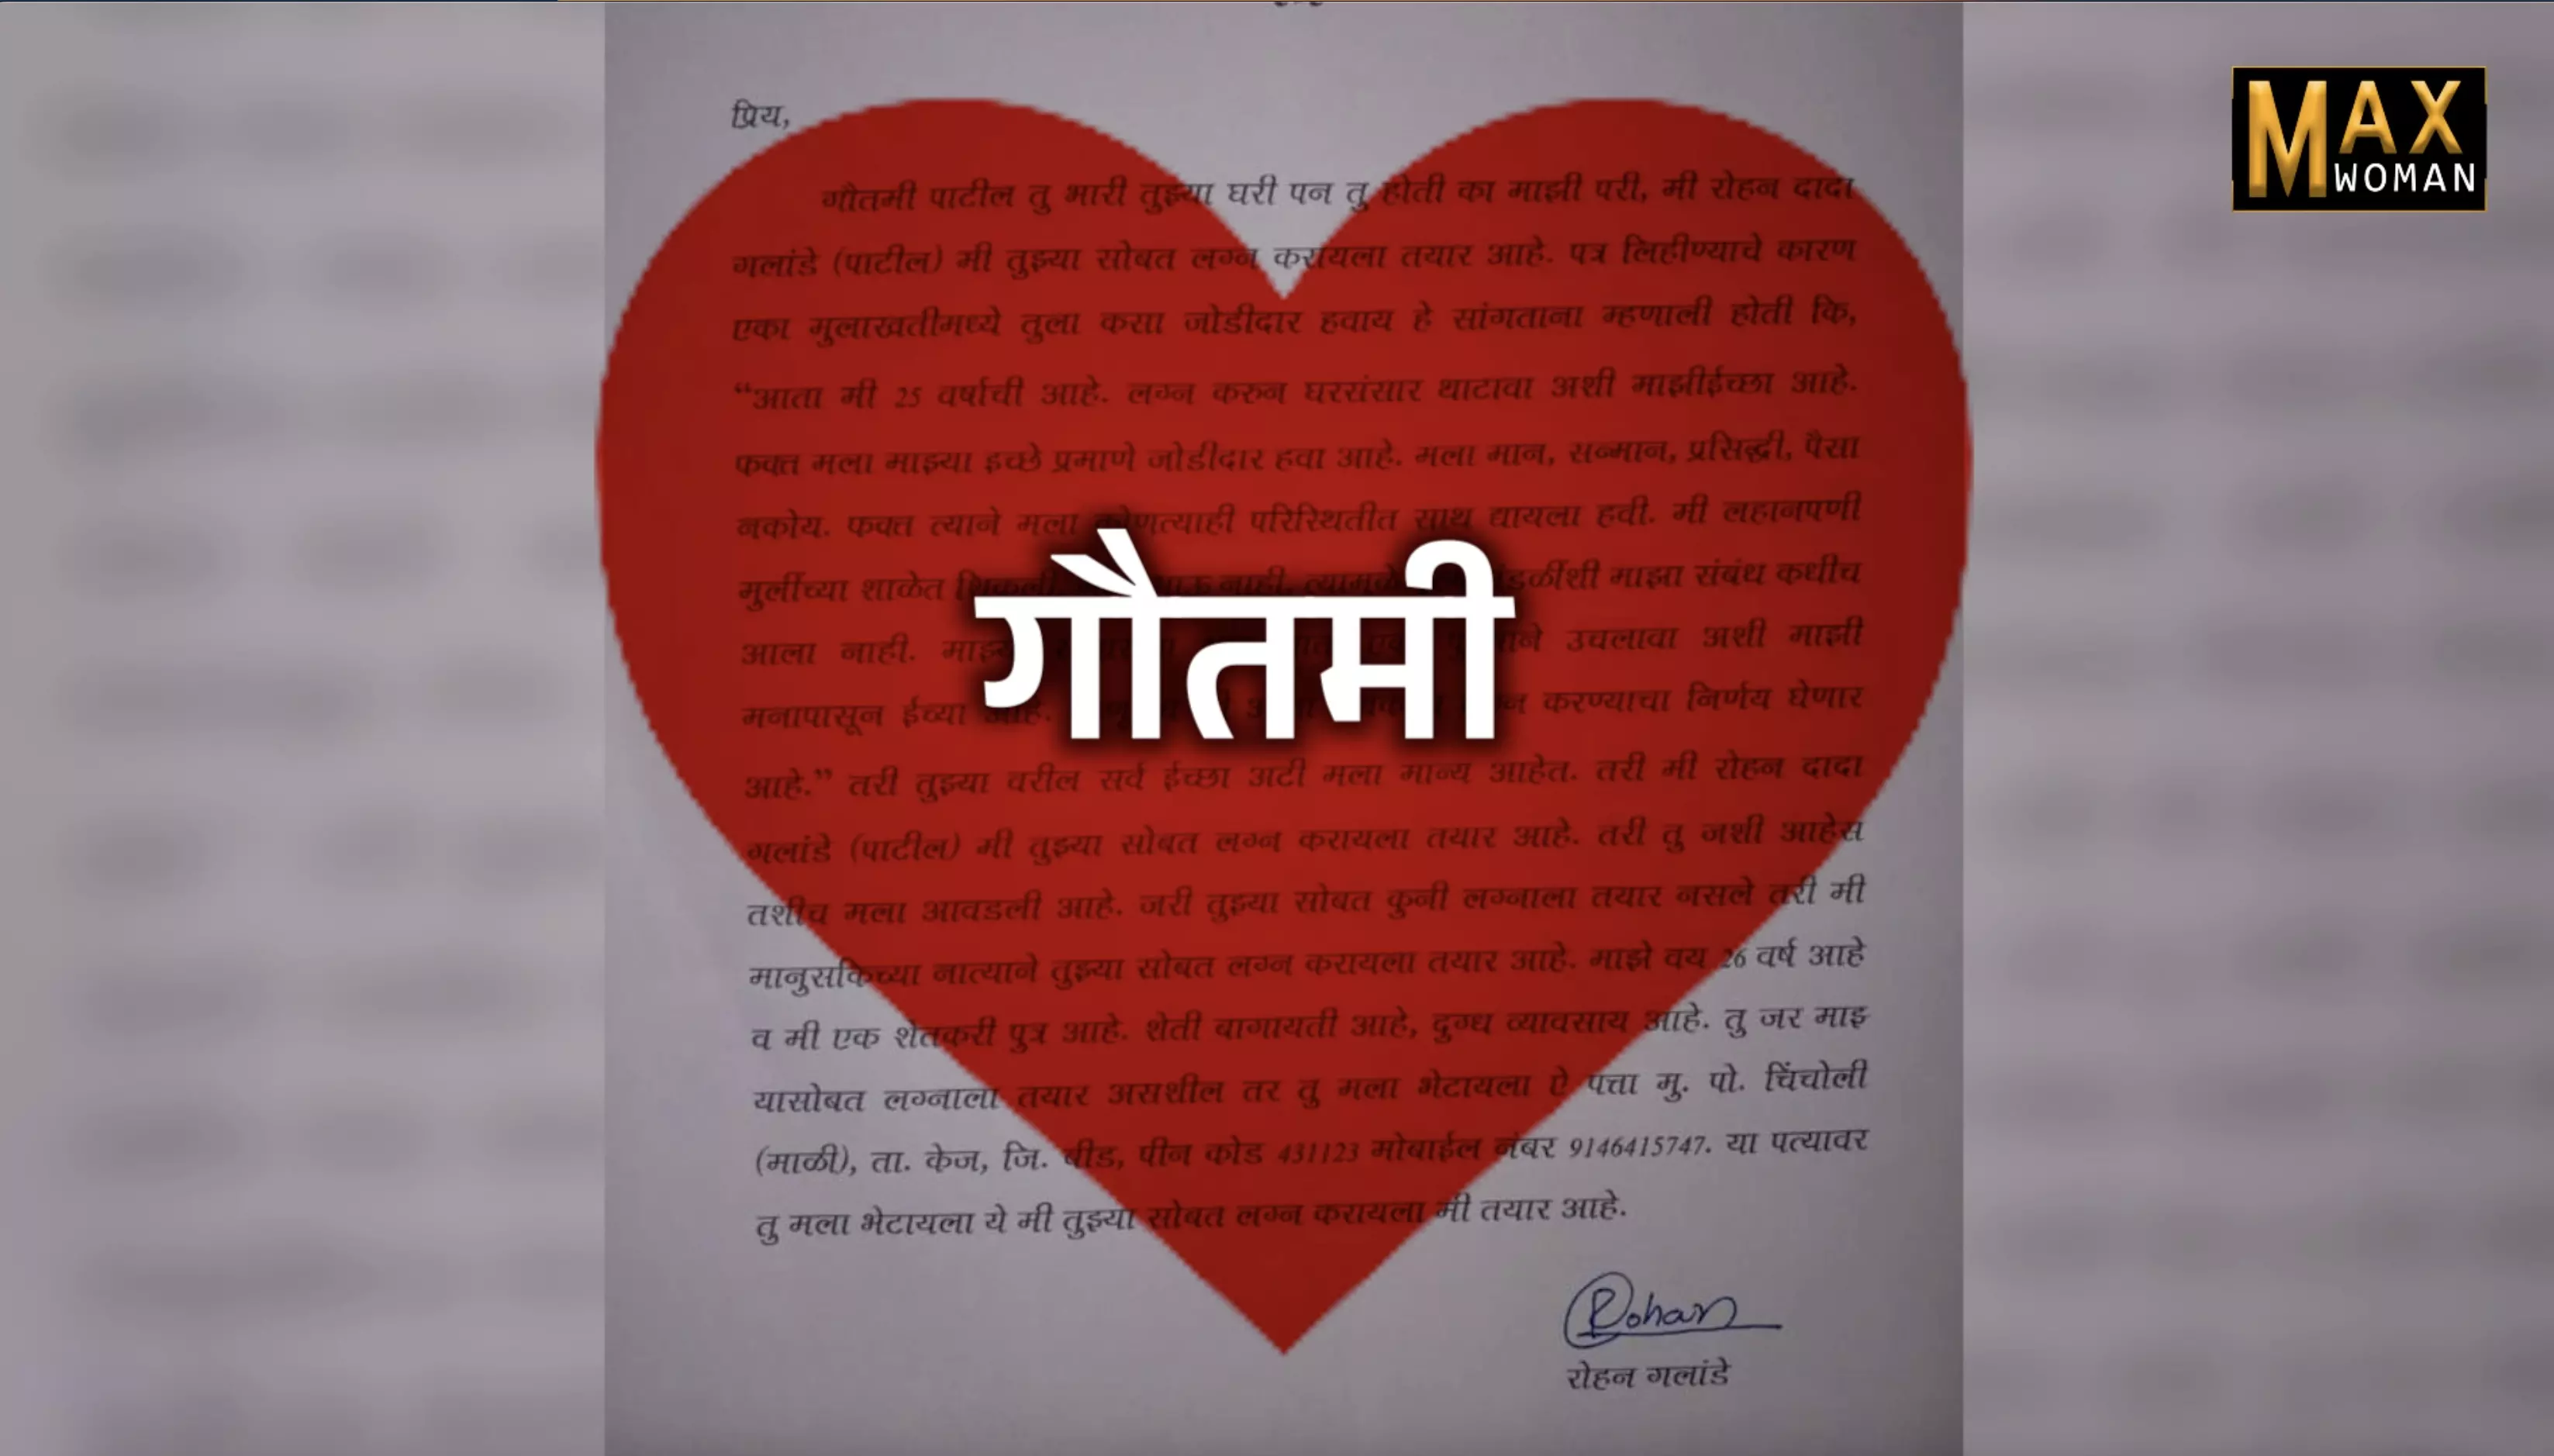 प्रिय,
MAX
WOMAN
गौतमी पाटील तु भारी तुझ्या घरी पन तु होती का माझी परी, मी रोहन दादा
गलांडे (पाटील) मी तुझ्या सोबत लग्न करायला तयार आहे. पत्र लिहीण्याचे कारण
एका मुलाखतीमध्ये तुला कसा जोडीदार हवाय हे सांगताना म्हणाली होती कि,
“आता मी 25 वर्षाची आहे. लग्न करुन घरसंसार थाटावा अशी माझीईच्छा आहे.
फक्त मला माझ्या इच्छे प्रमाणे जोडीदार हवा आहे. मला मान, सन्मान, प्रसिद्धी, पैसा
नकोय. फक्त त्याने मला कोणत्याही परिस्थितीत साथ द्यायला हवी. मी लहानपणी
मुलींच्या शाळेत नाही.
माझा संबंध कधीच
आला नाही. उचलावा अशी माझी
मनापासून ईच्या आहे. करण्याचा निर्णय घेणार
गौतमी
आहे.” तरी तुझ्या वरील सर्व ईच्छा अटी मला मान्य आहेत. तरी मी रोहन दादा
गलांडे (पाटील) मी तुझ्या सोबत लग्न करायला तयार आहे. तरी तु जशी आहेस
तशीच मला आवडली आहे. जरी तुझ्या सोबत कुनी लग्नाला तयार नसले तरी मी
मानुसकिच्या नात्याने तुझ्या सोबत लग्न करायला तयार आहे. माझे वय 26 वर्ष आहे
व मी एक शेतकरी पुत्र आहे. शेती बागायती आहे, दुग्ध व्यावसाय आहे. तु जर माझ
यासोबत लग्नाला तयार असशील तर तु मला भेटायला ऐ पत्ता मु. पो. चिंचोली
(माळी), ता. केज, जि. बीड, पीन कोड 431123 मोबाईल नंबर 9146415747. या पत्यावर
तु मला भेटायला ये मी तुझ्या सोबत लग्न करायला मी तयार आहे.
Rohan
रोहन गलांडे